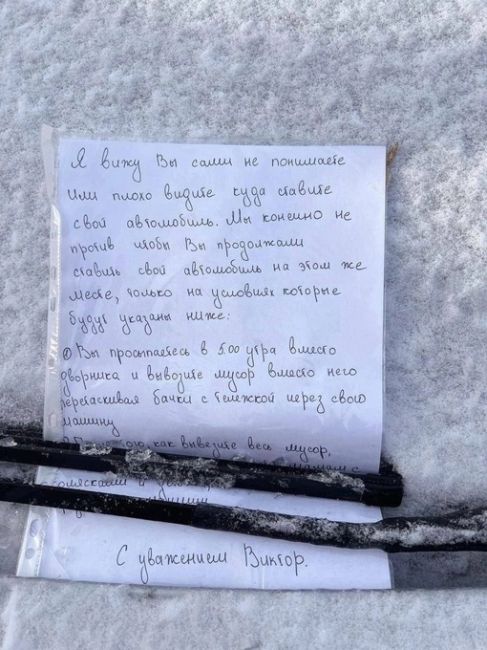 Я вижу Вы сами не понимаете
или плохо видите куда ставите
свой автомобиль. Мы конечно не
против чтобы Вы продолжали
ставить свой автомобиль на этом же
месте, только на условиях которые
будут указаны ниже:
① Вы просыпаетесь в 5:00 утра вместо
дворника и вывозите мусор вместо него
перетаскивая бачки с тележкой через свою
машину
как вывезите весь мусор,
мамам с
колясками и
С уважением Виктор.